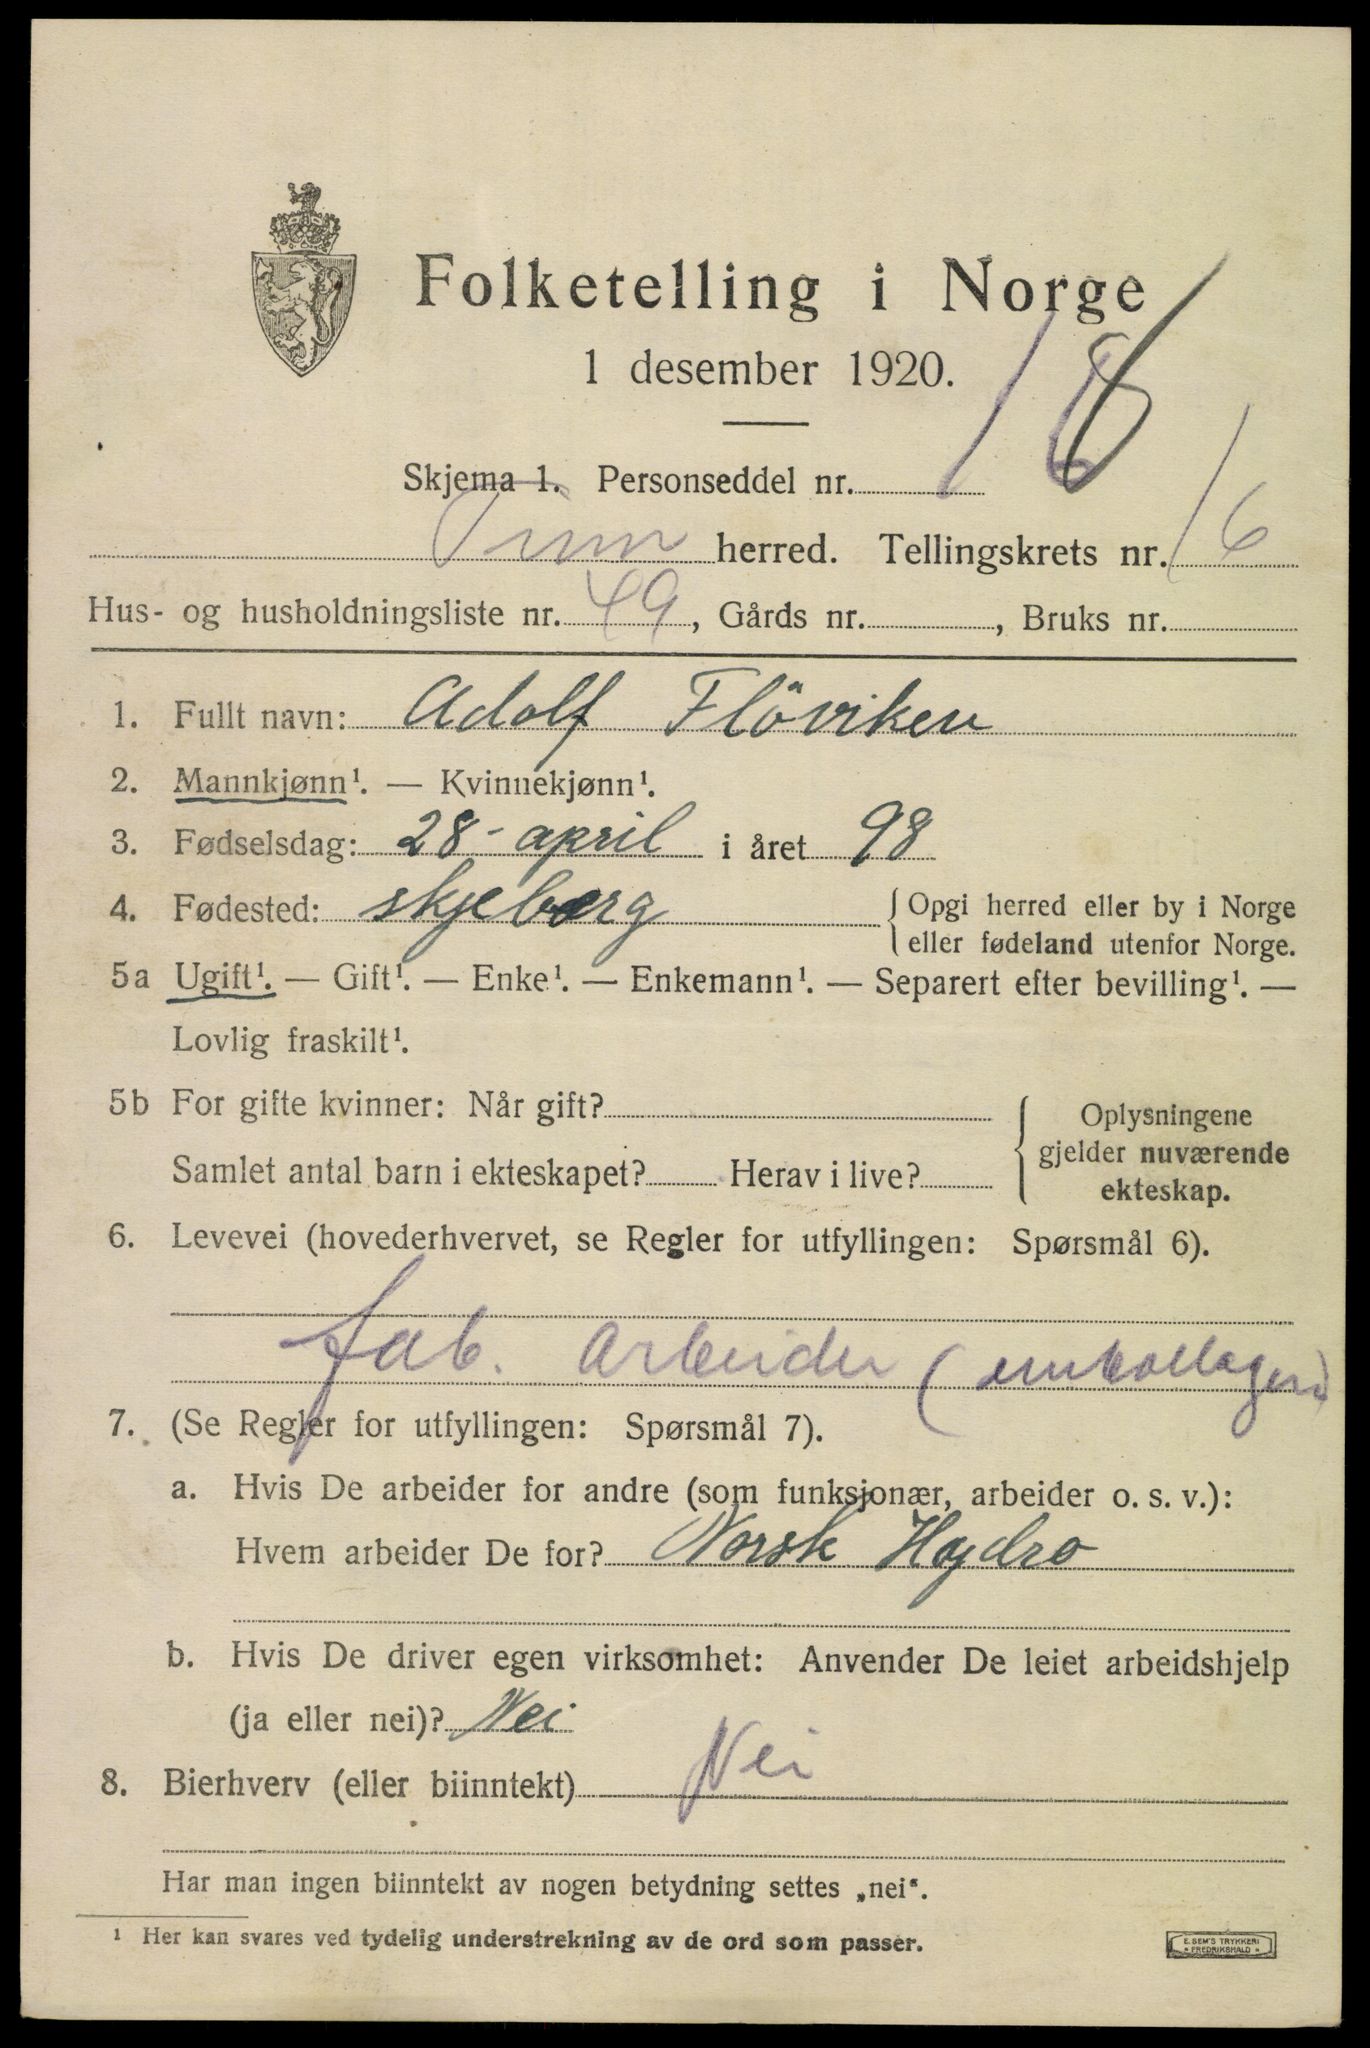 Folketelling i Norge
1 desember 1920.
Skjema 1. Personseddel nr.
Tinn herred. Tellingskrets nr. 16
Hus- og husholdningsliste nr. 49, Gårds nr. , Bruks nr.
1. Fullt navn: Adolf Flöviken
2. Mannkjønn¹. — Kvinnekjønn¹.
3. Fødselsdag: 28 - april i året 98
4. Fødested: skjeberg { Opgi herred eller by i Norge
eller fødeland utenfor Norge.
5a Ugift¹. — Gift¹. — Enke¹. — Enkemann¹. — Separert efter bevilling¹. —
Lovlig fraskilt¹.
5b For gifte kvinner: Når gift?
Samlet antal barn i ekteskapet? Herav i live?
{ Oplysningene
gjelder nuværende
ekteskap.
6. Levevei (hovederhvervet, se Regler for utfyllingen: Spørsmål 6).
fab. Arbeider (emballagen)
7. (Se Regler for utfyllingen: Spørsmål 7).
a. Hvis De arbeider for andre (som funksjonær, arbeider o. s. v.):
Hvem arbeider De for? Norsk Hydro
b. Hvis De driver egen virksomhet: Anvender De leiet arbeidshjelp
(ja eller nei)? Nei
8. Bierhverv (eller biinntekt) Nei
Har man ingen biinntekt av nogen betydning settes „nei“.
¹ Her kan svares ved tydelig understrekning av de ord som passer.
E. SEM'S TRYKKERI
* FREDRIKSHALD *